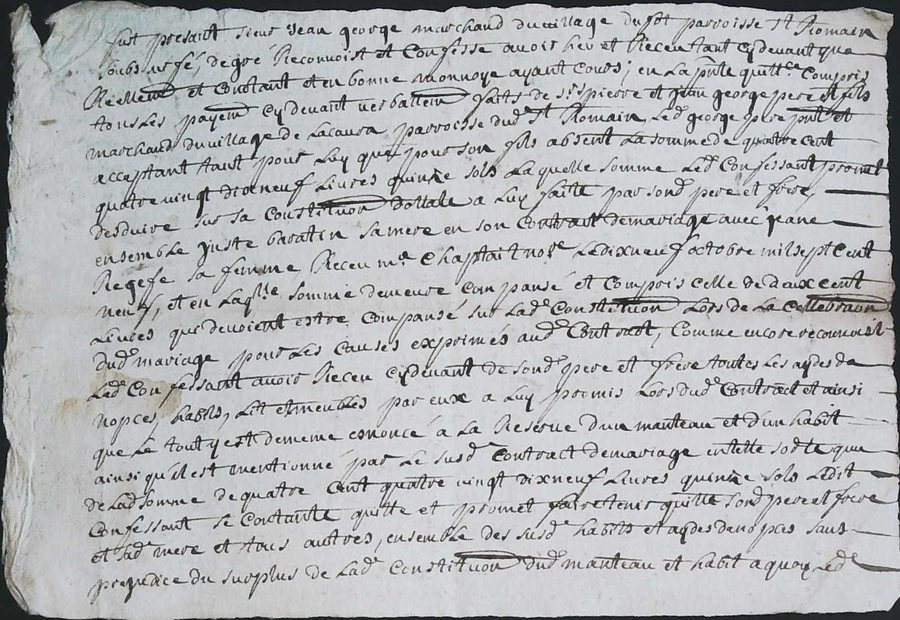 fut presant sieur Jean george marchand du village du parroisse St Romain
soubsigné, de gré Reconnoist et Confesse avoir heu et Receu tant cydevant que
Reellemt et Contant et en bonne monnoye ayant Cours, en La pnte quittce Compris
tous Les payemt cydevant verballemt faits de srs pierre et jean george pere et fils
marchand du village de Lacaura parroisse dud St Romain, Led george pere pnt et
acceptant tant pour Luy que pour son fils absent La somme de quatre cent
quatre vingt dixneuf Livres quinze sols La quelle somme Led Confessant promet
desduire sur sa Constitution dottalle a Luy faite par sond pere et frere,
ensemble juste baratin sa mere en son Contrant de mariage avec jane
Regefe sa femme Receu me Chaptait nore Le dixneuf octobre mil sept Cent
neuf, et en Laqlle somme demeure Compansé et Compris celle de deux cent
Livres que devoient estre Compansé sur Lad Constitution Lors de La Cellebraon
dud mariage pour Les Causes exprimés aud Contract, Comme encore reconnoist
Led Confessant avoir Receu cydevant de sond pere et frere toutes Les aydes de
nopces, habits, Lit et meubles par eux a Luy promis Lors dud Contract et ainsi
que Le tout y est de meme enoncé à La Reserve d'un manteau et d'un habit
ainsi qu'il est mentionné par Le susd Contract de mariage en telle sorte que
de Lad somme de quatre Cent quatre vingt dixneuf Livres quinze sols Ledit
Confessant se Contante quitte et promet faire tenir quitte sond pere et frere
et sad mere et tous autres, ensemble des susd habits et aydes de nopces sans
prejudice du surplus de Lad Constitution dud manteau et habit a quoy Led